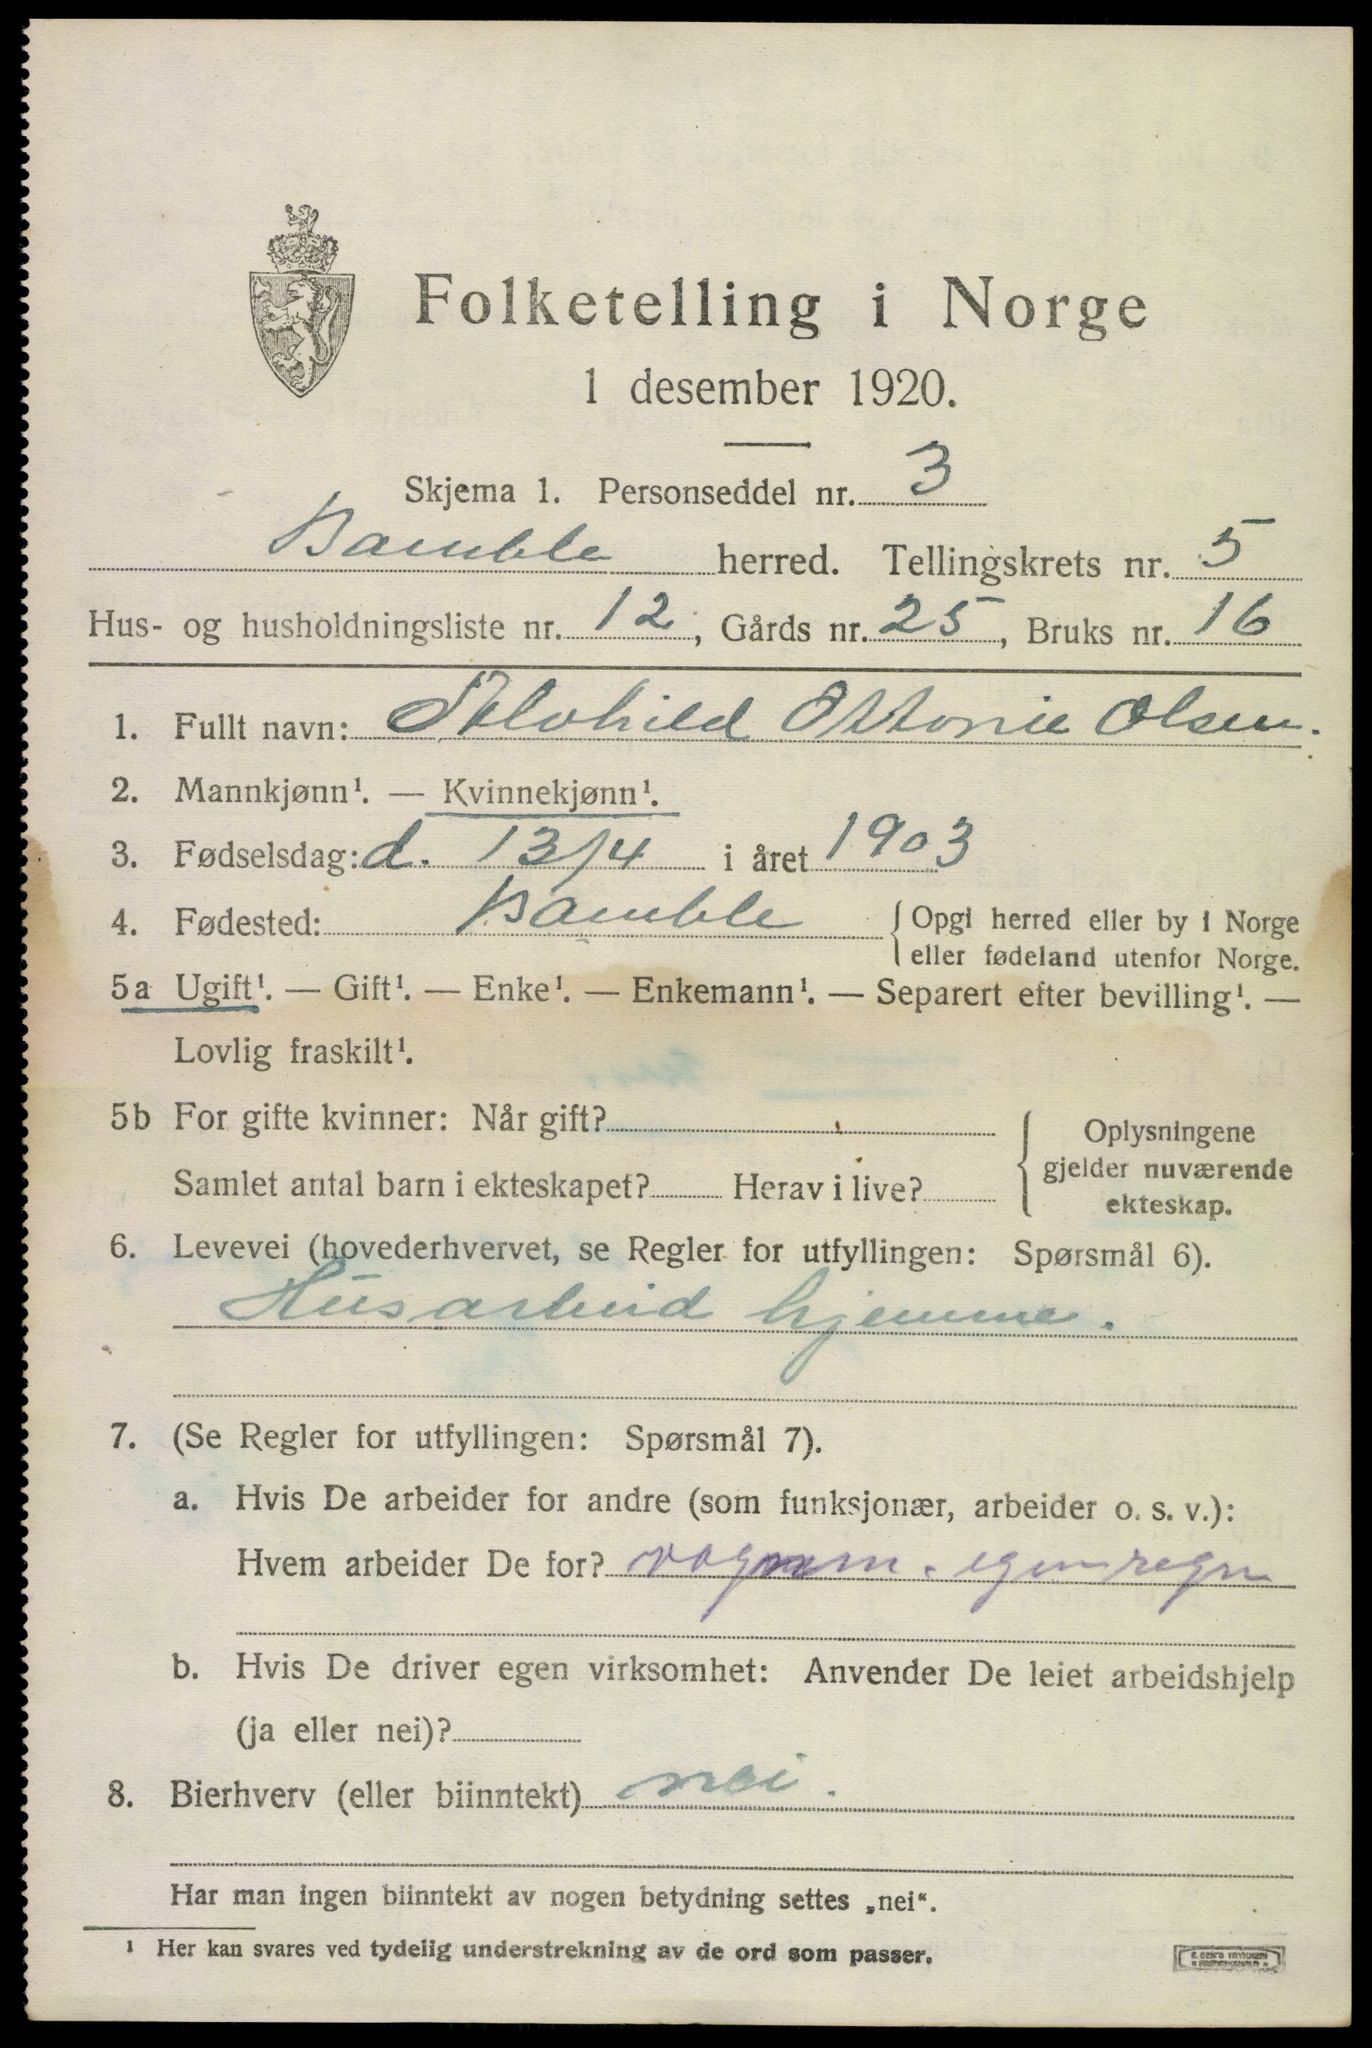 Folketelling i Norge
1 desember 1920.
Skjema 1. Personseddel nr. 3
Bamble herred. Tellingskrets nr. 5
Hus- og husholdningsliste nr. 12, Gårds nr. 25, Bruks nr. 16
1. Fullt navn: Ottonie Olsen.
2. Mannkjønn¹. — Kvinnekjønn¹.
3. Fødselsdag: d. 13/4 i året 1903
4. Fødested: Bamble { Opgi herred eller by i Norge
eller fødeland utenfor Norge.
5a Ugift¹. — Gift¹. — Enke¹. — Enkemann¹. — Separert efter bevilling¹. —
Lovlig fraskilt¹.
5b For gifte kvinner: Når gift?
Samlet antal barn i ekteskapet? Herav i live?
Oplysningene
gjelder nuværende
ekteskap.
6. Levevei (hovederhvervet, se Regler for utfyllingen: Spørsmål 6).
Husarbeid hjemme.
7. (Se Regler for utfyllingen: Spørsmål 7).
a. Hvis De arbeider for andre (som funksjonær, arbeider o. s. v.):
Hvem arbeider De for? egen regn
b. Hvis De driver egen virksomhet: Anvender De leiet arbeidshjelp
(ja eller nei)?
8. Bierhverv (eller biinntekt) nei.
Har man ingen biinntekt av nogen betydning settes „nei“.
¹ Her kan svares ved tydelig understrekning av de ord som passer.